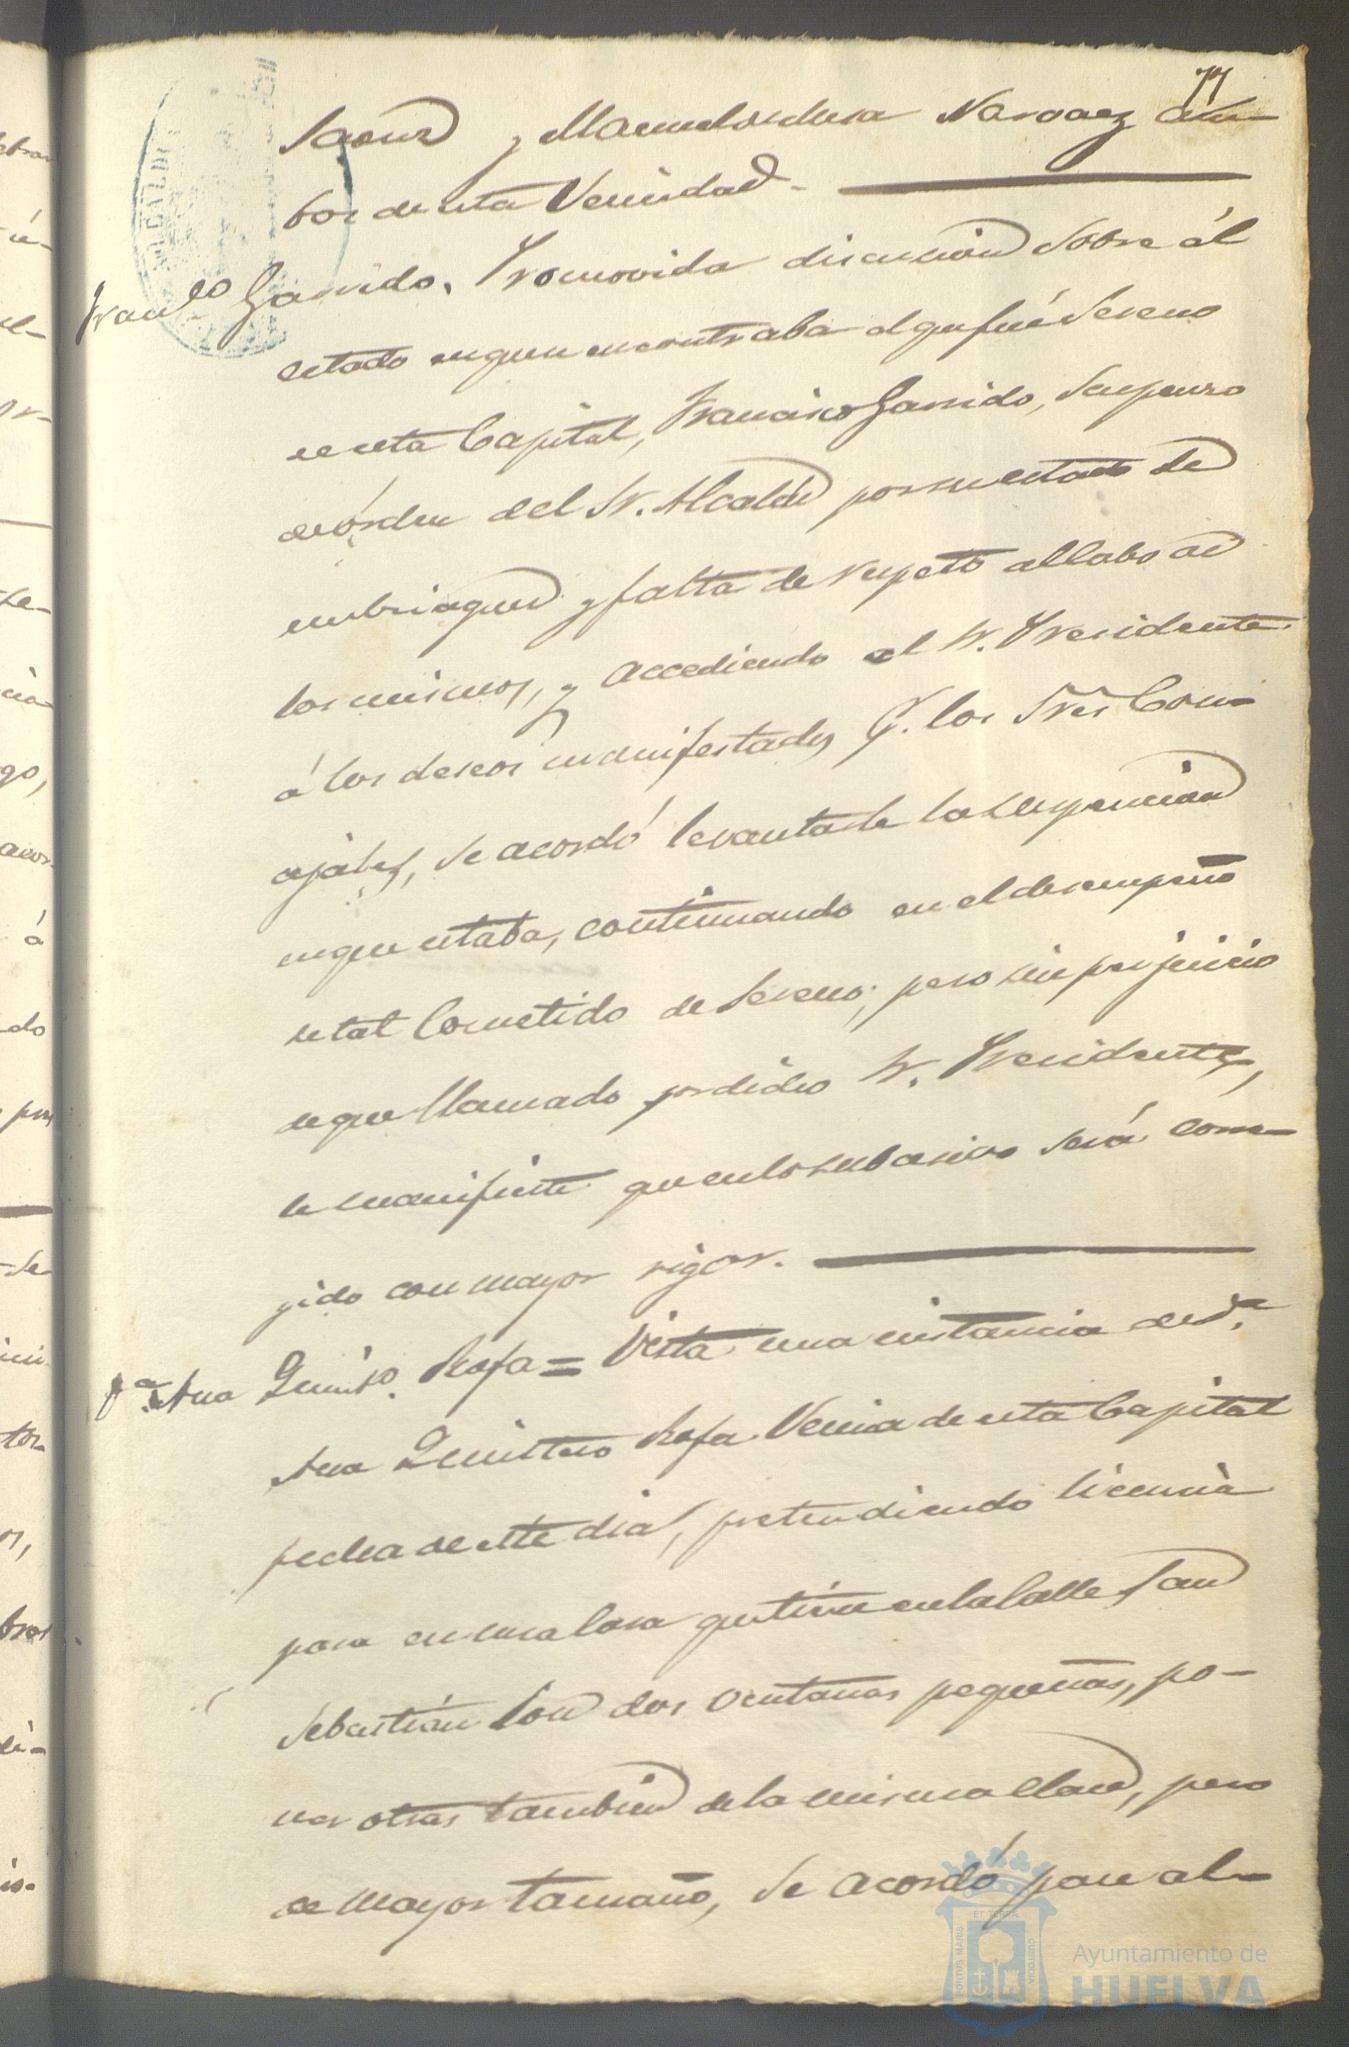 77
Saenz y Manuel de Mesa Narvaez am-
bos de esta Vecindad.
Franco Garrido. Promovida discusión sobre él
estado en que se encontraba el que fué Sereno
de esta Capital, Francisco Garrido, suspenso
de órden del Sr. Alcalde por su estado de
embriaguez y falta de respeto al Cabo de
los mismos, y accediendo el Sr. Presidente
á los deseos manifestados p. los Sres Con-
cejales, se acordó levantarle la suspencion
en que estaba, continuando en el desempeño
de tal Cometido de Sereno; pero sin perjuicio
de que llamado por dicho Sr. Presidente,
le manifieste que en lo subcesivo será corre-
jido con mayor rigor.
Da. Ana Quinto. Rofa = Vista una instancia de Da.
Ana Quintero Rofa Vecina de esta Capital
fecha de este dia, pretendiendo licencia
para en una Casa que tiene en la Calle San
Sebastián Con dos ventanas pequeñas, po-
ner otras tambien de la misma clase, pero
de mayor tamaño, se acordó pase al-
ALCALDI
PORTUS MARIS ET TERRÆ CUSTODIA
Ayuntamiento de
HUELVA